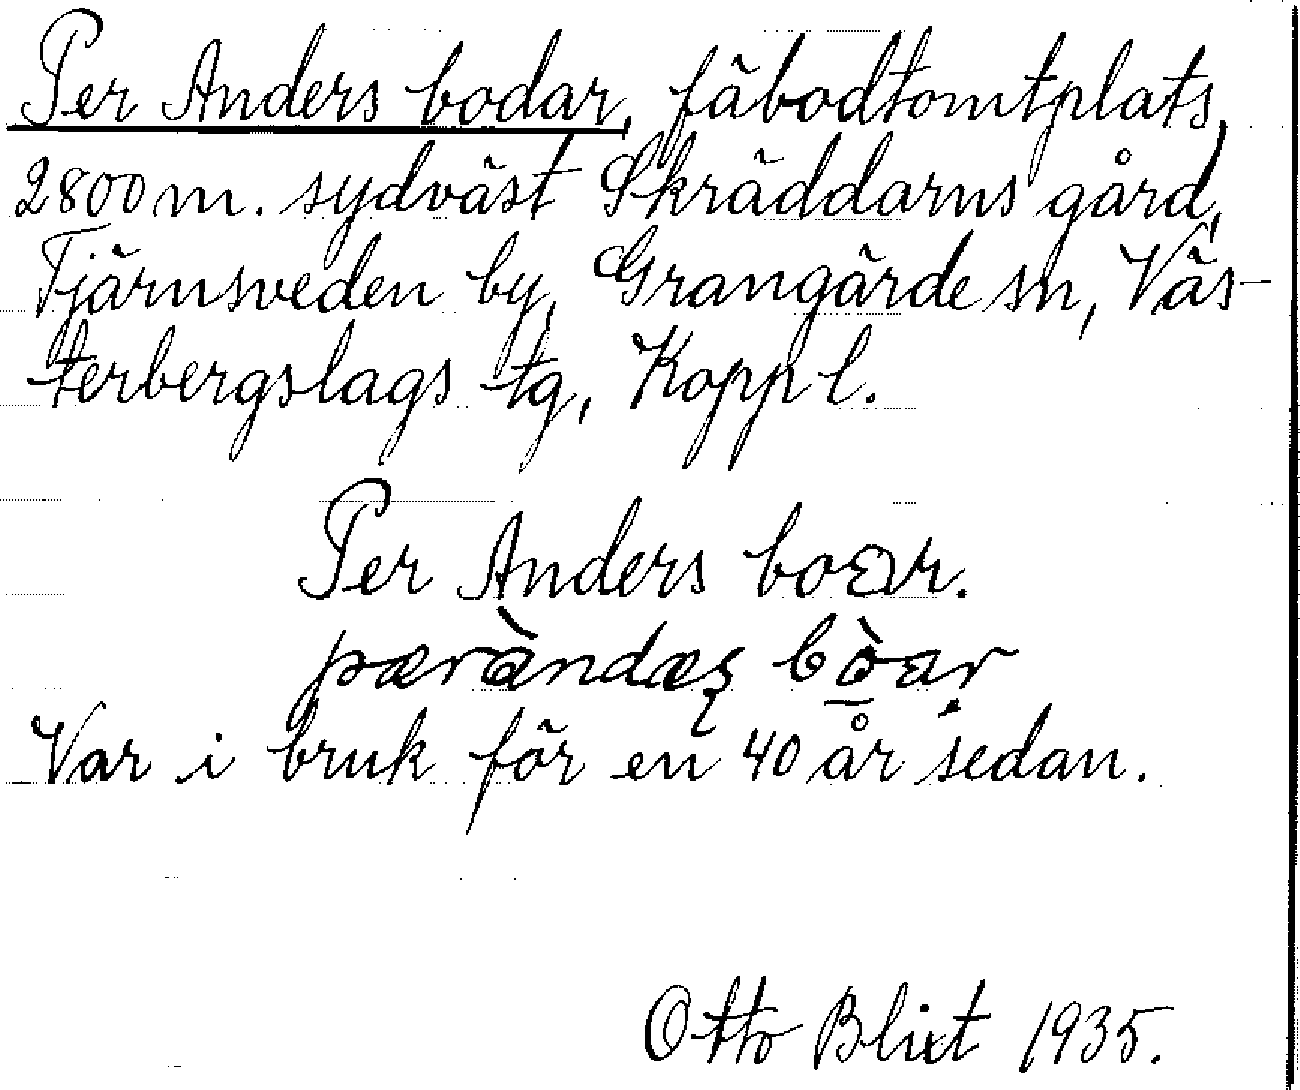 Per Anders bodar, fäbodtomtplats,
2800 m. sydväst Skräddarns gård,
Tjärnsveden by, Grangärde sn, Väs-
terbergslags tg, Kopp l.
Per Anders boar.
Var i bruk för en 40 år sedan.
Otto Blixt 1935.